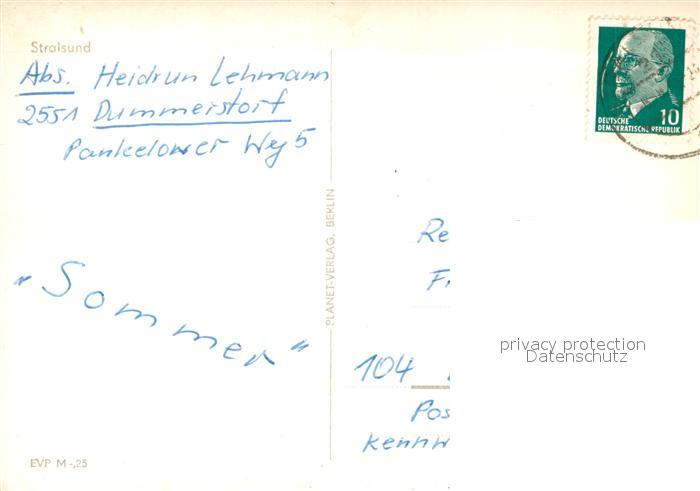 Stralsund
Abs. Heidrun Lehmann
2551 Dummerstorf
Pankelower Weg 5
"Sommer"
EVP M -,25
PLANET-VERLAG, BERLIN
10
DEUTSCHE
DEMOKRATISCHE REPUBLIK
Re
Fr
104
Pos
kennw
privacy protection
Datenschutz